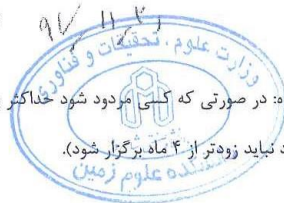 وزارت علوم، تحقیقات و فناوری
ه: در صورتی که کسی مردود شود حداکثر
د نباید زودتر از ۴ ماه برگزار شود).
علوم زمین